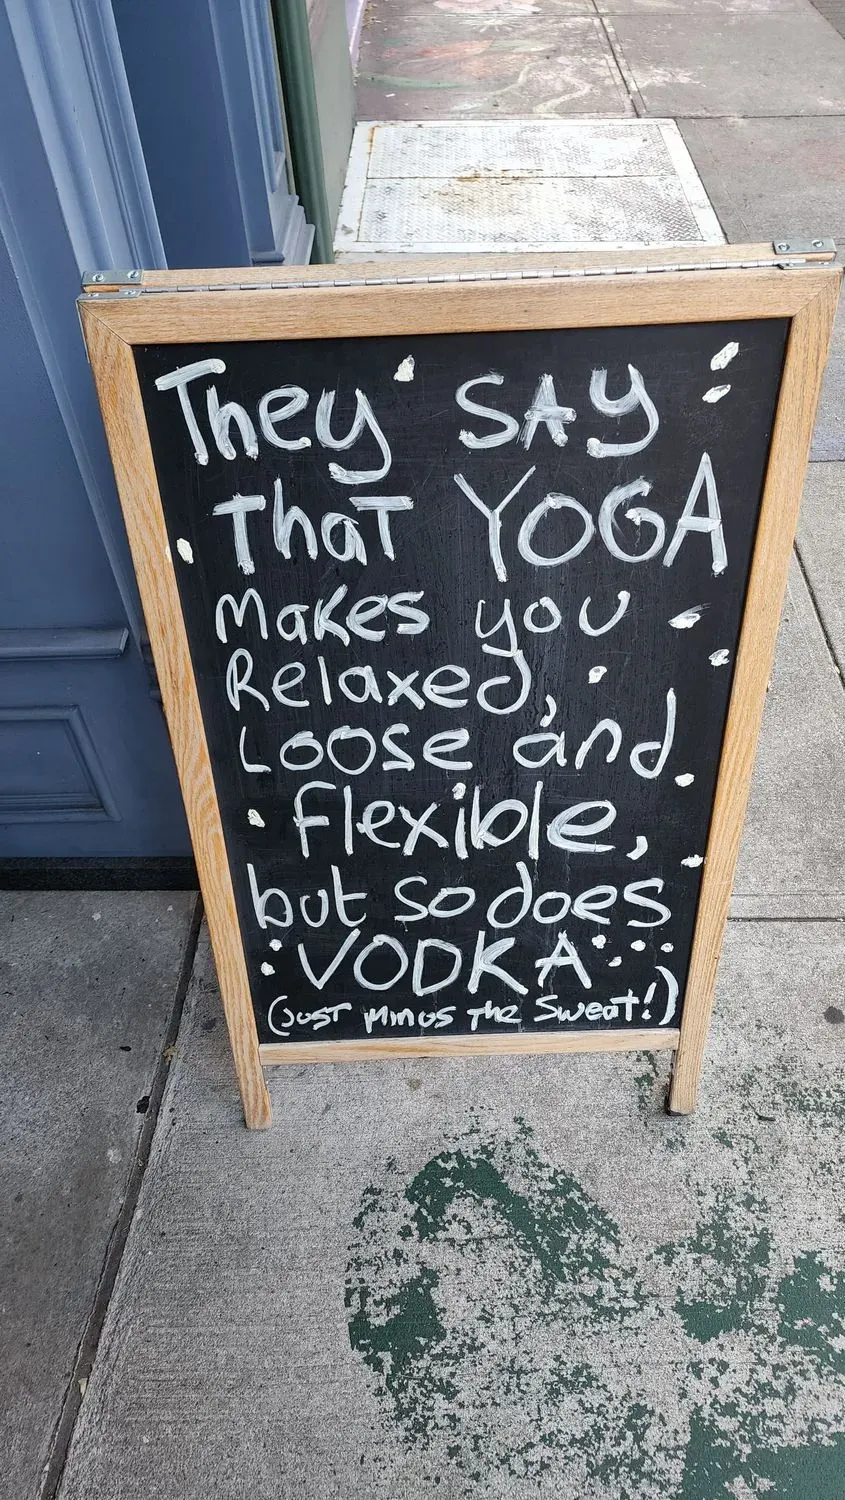 They SAY
That YOGA
Makes you
Relaxed,
Loose and
flexible,
but so does
VODKA
(Just Minus The Sweat!)